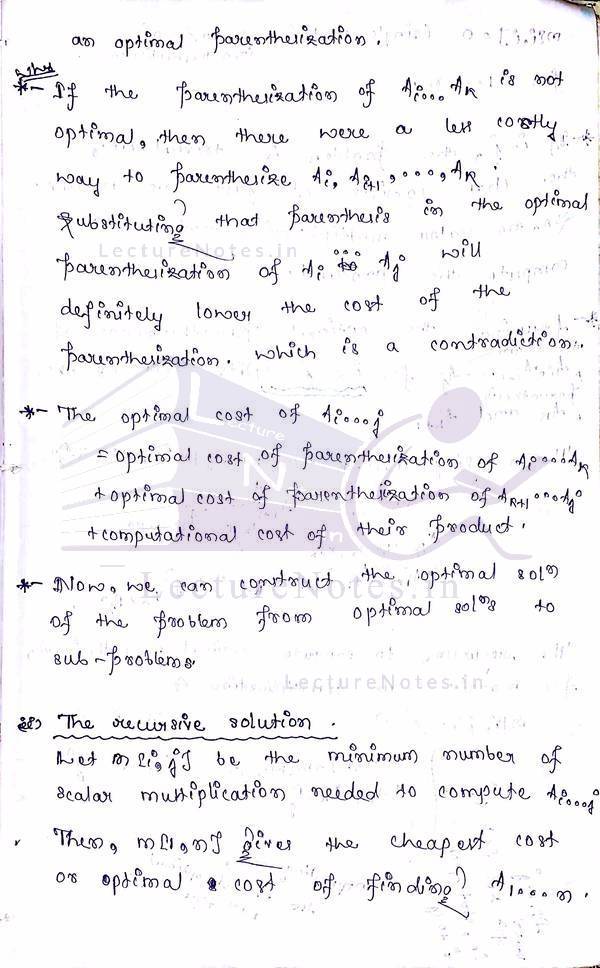 an optimal parenthesization.
*- If the parenthesization of Ai...Ak is not
optimal, then there were a less costly
way to parenthesize Ai, Ai+1, ...., Ak.
Substituting that parenthesis in the optimal
LectureNotes.in
parenthesization of Ai ... Aj will
definitely lower the cost of the
parenthesization. which is a contradiction.
*- The optimal cost of Ai...j
= optimal cost of parenthesization of Ai...Ak
+ optimal cost of parenthesization of Ak+1...Aj
+ computational cost of their product.
*- Now, we can construct the optimal soln
LectureNotes.in
of the problem from optimal solns to
sub-problems.
LectureNotes.in
The recursive solution.
Let m[i,j] be the minimum number of
scalar multiplication needed to compute Ai...j
Then, m[1,n] gives the cheapest cost
or optimal cost of finding A1...n.